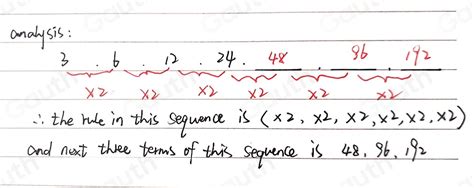 analysis:
3 . 6 . 12 . 24 . 48 . 96 . 192
×2 ×2 ×2 ×2 ×2 ×2
∴ the rule in this sequence is (×2, ×2, ×2, ×2, ×2, ×2)
and next three terms of this sequence is 48, 96, 192